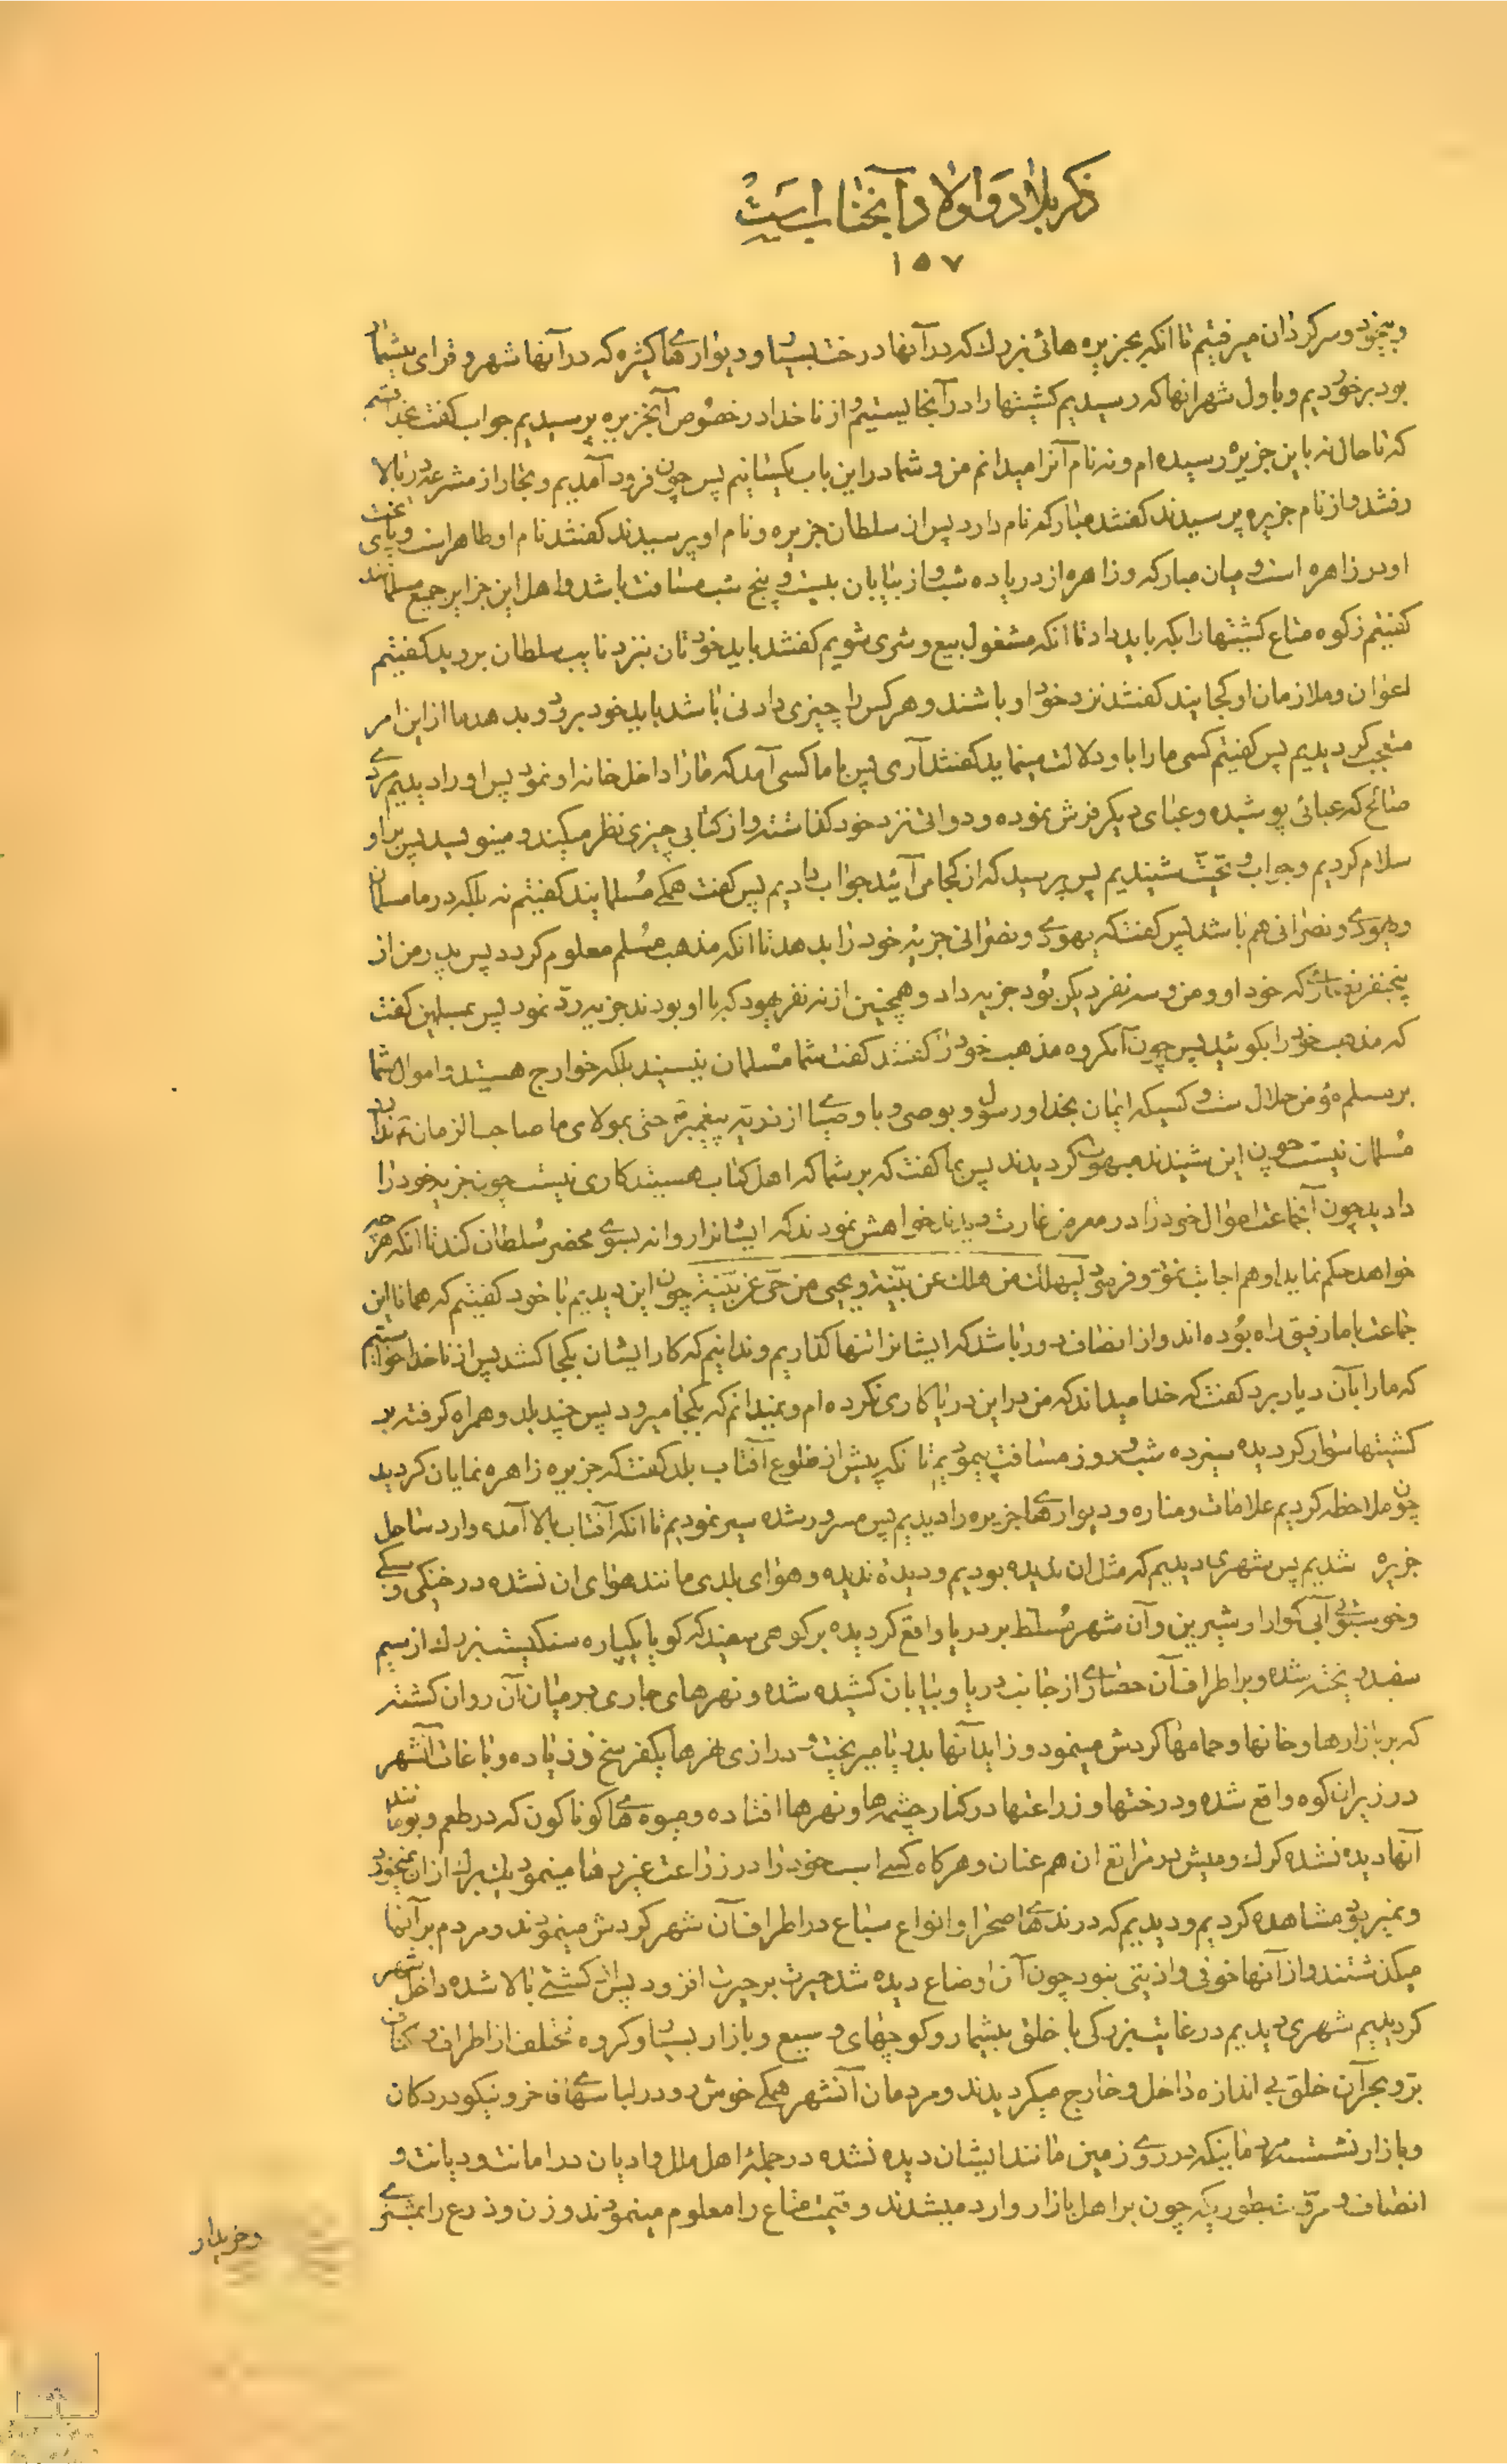 ذکر بلاد و اولاد آنجناب است
١٥٧
و بیخود و سرکردان میرفتیم تا انکه بجزیره هائی بزرك که در آنها درخت بسیار و دیوارهای کثیره که در آنها شهر و قرای بیشمار
بود برخوردیم و باول شهر انها که رسیدیم کشیتها را در آنجا بستیم و از ناخدا در خصوص آنجزیره پرسیدیم جواب کفت بخدا قسم
که تا حال نه باین جزیره رسیده ام و نه نام آنرا میدانم من و شما در این باب یکسانیم پس چون فرود آمدیم و تجار از مشرعه در بالا
رفتند و از نام جزیره پرسیدند کفتند مبارکه نام دارد پس از سلطان جزیره و نام او پرسیدند کفتند نام او طاهر است و پای تخت
او در زاهره است و میان مبارکه و زاهره از دریا ده شب و از بیابان بیست و پنج شب مسافت باشد و اهل این جزایر جمیع مسلمانند
کفتیم زکوه متاع کشیتها را بکه باید داد تا انکه مشغول بیع و شری شویم کفتند باید خودتان بنزد نایب سلطان بروید کفتیم
اعوان و ملازمان او کجایند کفتند نزد خود او باشند و هر کس را چیزی دادنی باشد باید خود برود و بدهد ما از این امر
متعجب کردیدیم پس کفتیم کسی ما را باو دلالت مینماید کفتند آری پس با ما کسی آمد که ما را داخل خانه او نمود پس او را دیدیم مردی
صالح که عبائی پوشیده و عبای دیکر فرش نموده و دواتی نزد خود کذاشته و از کتابی چیزی نظر میکند و مینویسد پس بر او
سلام کردیم و جواب و تحیت شنیدیم پس پرسید که از کجا می آئید جواب دادیم پس کفت همکی مسلمانید کفتیم نه بلکه در ما مسلمان
و یهودی و نصرانی هم باشد پس کفت که یهودی و نصرانی جزیه خود را بدهد تا انکه مذهب مسلم معلوم کردد پس پدر من از
پنجنفر نصاری که خود او و من و سه نفر دیکر بود جزیه داد و همچنین از نه نفر یهود که با او بودند جزیه رد نمود پس بمسلمین کفت
که مذهب خود را بکوئید پس چون آنکروه مذهب خود را کفتند کفت شما مسلمان نیستید بلکه خوارج هستید و اموال شما
بر مسلم مؤمن حلال است و کسیکه ایمان بخدا و رسول و بوصی و باوصیا از ذریه پیغمبر حتی بمولای ما صاحب الزمان ندارد
مسلمان نیست چون این شنیدند مبهوت کردیدند پس بما کفت که بر شما که اهل کتاب هستید کاری نیست چون جزیه خود را
دادید چون آنجماعت اموال خود را در معرض غارت دیدند خواهش نمودند که ایشانرا روانه بسوی محضر سلطان کند تا انکه هر چه
خواهد حکم نماید او هم اجابت نمود و فرمود لیهلك من هلك عن بینة و یحیی من حی عن بینة چون این دیدیم با خود کفتیم که همانا این
جماعت با ما رفیق راه بوده اند و از انصاف دور باشد که ایشانرا تنها کذاریم و ندانیم که کار ایشان بکجا کشد پس از ناخدا خواستیم
که ما را بآن دیار برد کفت که خدا میداند که من در این دریا کاری نکرده ام و نمیدانم که بکجا میرود پس چند بلد و همراه کرفته بر
کشیتها سوار کردیده سیزده شب و روز مسافت پیمودیم تا انکه پیش از طلوع آفتاب بلد کفت که جزیره زاهره نمایان کردید
چون ملاحظه کردیم علامات و مناره و دیوارهای جزیره را دیدیم پس مسرور شده سیر نمودیم تا انکه آفتاب بالا آمده وارد ساحل
جزیره شدیم پس شهری دیدیم که مثل ان ندیده بودیم و دیده ندیده و هوای بلدی مانند هوای ان نشده در خنکی و سبکی
و خوشبوئی آبی کوارا و شیرین و آن شهر مسلط بر دریا واقع کردیده بر کوهی سفید که کویا یکپاره سنکیست بزرك از سیم
سفید پخته شده و بر اطراف آن حصاری از جانب دریا و بیابان کشیده شده و نهرهای جاری در میان آن روان کشته
که بر بازارها و خانها و حمامها کردش مینمود و زاید آنها بدریا میریخت و درازی نهرها یکفرسخ و زیاده و باغات آنشهر
در زیر ان کوه واقع شده و درختها و زراعتها در کنار چشمه ها و نهرها افتاده و میوه های کوناکون که در طعم و بو مانند
آنها دیده نشده کرك و میش در مراتع ان هم عنان و هرکاه کسی اسب خود را در زراعت غیر رها مینمود یك برك از ان نمیخورد
و نمیربود مشاهده کردیم و دیدیم که درندهای صحرا و انواع سباع در اطراف آن شهر کردش مینمودند و مردم بر آنها
میکذشتند و از آنها خوفی و اذیتی نبود چون آن اوضاع دیده شد حیرت بر حیرت افزود پس از کشتی بالا شده داخل شهر
کردیدیم شهری دیدیم در غایت بزرکی با خلق بیشمار و کوچهای وسیع و بازار بسیار و کروه مختلف از اطراف و اکناف
بر و بحر آن خلق بی اندازه داخل و خارج میکردیدند و مردمان آنشهر همکی خوش رو و در لباسهای فاخر و نیکو در دکان
و بازار نشسته مردمانیکه در روی زمین مانند ایشان دیده نشده در جمله اهل ملل و ادیان در امانت و دیانت و
انصاف و مروت بطوریکه چون بر اهل بازار وارد میشدند و قیمت متاع را معلوم مینمودند وزن و ذرع را بمشتری
و خریدار